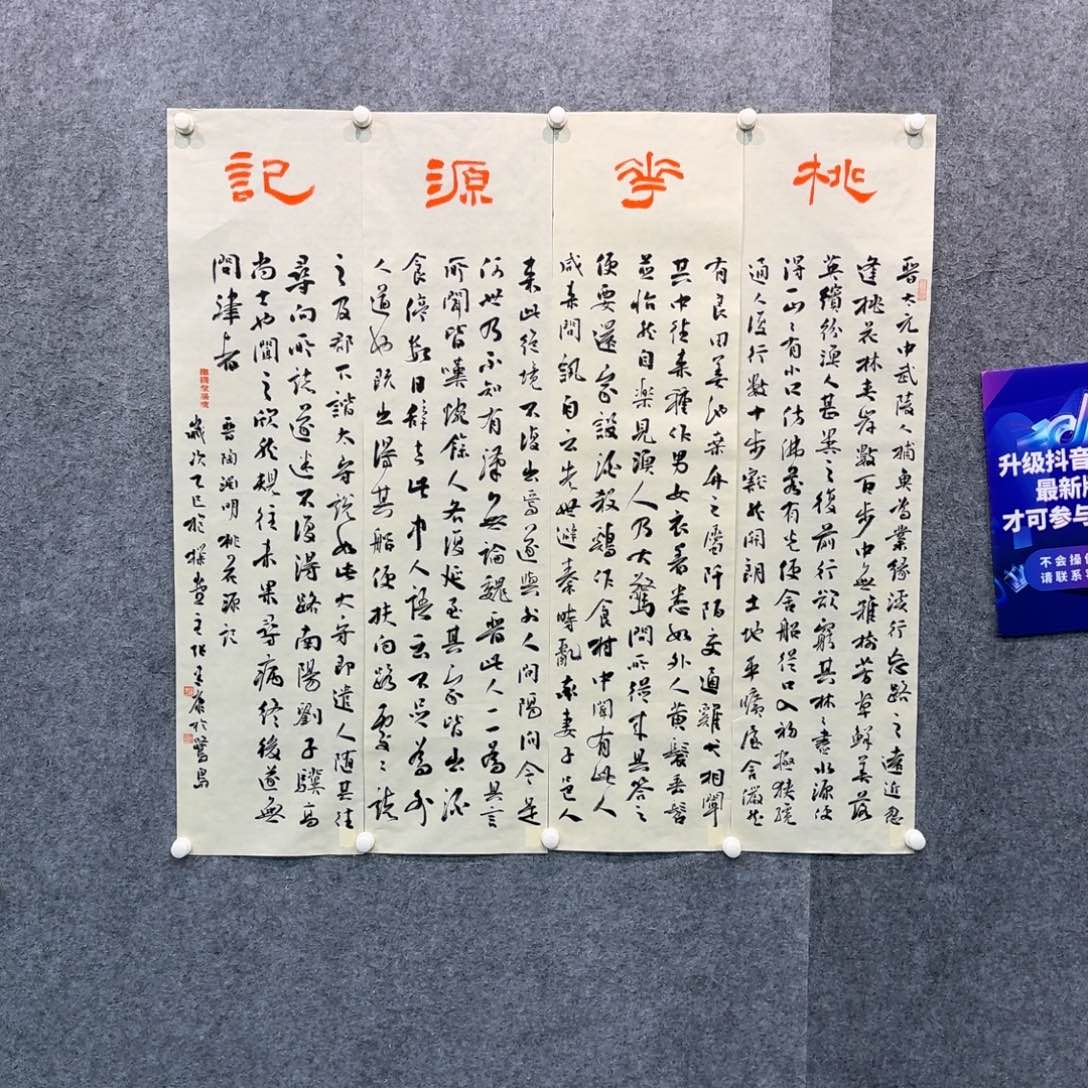 桃華源記
晋太元中武陵人捕魚為業緣溪行忘路之遠近忽
逢桃花林夹岸數百步中無雜樹芳草鮮美落
英繽紛漁人甚異之復前行欲窮其林〻盡水源便
得一山〻有小口仿佛若有光便舍船從口入初極狹纔
通人復行數十步豁然開朗土地平曠屋舍儼然
有良田美池桑竹之屬阡陌交通雞犬相聞
其中往来種作男女衣着悉如外人黄髮垂髫
並怡然自樂見漁人乃大驚問所從来具答之
便要還家設酒殺鷄作食村中聞有此人
咸来問訊自云先世避秦時亂率妻子邑人
来此絕境不復出焉遂與外人間隔問今是
何世乃不知有漢無論魏晋此人一一為具言
所聞皆嘆惋餘人各復延至其家皆出酒
食停數日辭去此中人語云不足為外
人道也既出得其船便扶向路處〻誌
之及郡下詣太守說如此太守即遣人隨其往
尋向所誌遂迷不復得路南陽劉子驥高
尚士也聞之欣然規往未果尋病終後遂無
問津者
晋陶淵明桃花源記
歲次乙巳於 堂主 於鷺島
升级抖音
最新版
才可参与
不会操作
请联系